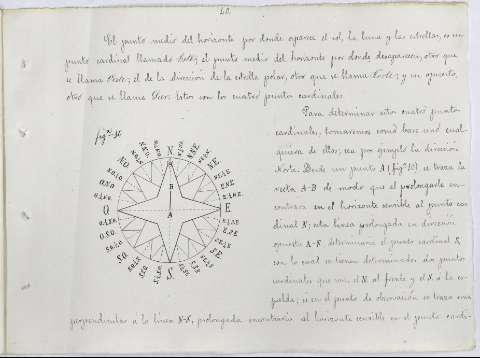 60.
El punto medio del horizonte por donde aparece el sol, la luna y las estrellas, es un
punto cardinal llamado Este; el punto medio del horizonte por donde desaparecen, otro que
se llama Oeste; el de la dirección de la estrella polar, otro que se llama Norte; y su opuesto,
otro que se llama Sur. Estos son los cuatro puntos cardinales.
Para determinar estos cuatro puntos
cardinales, tomaremos como base uno cual
quiera de ellos; sea por ejemplo la dirección
Norte. Desde un punto A (figª 10) se traza la
recta A-B de modo que al prolongarla en-
contrara en el horizonte sensible al punto car
dinal N; esta línea prolongada en dirección
opuesta A-S determinará el punto cardinal S,
con lo cual se tienen determinados dos puntos
cardinales que son, el N. al frente y el S. a la es-
palda; si en el punto de observación se traza una
perpendicular a la línea N-S, prolongada encontrará al horizonte sensible en el punto cardi-
N
NE
E
SE
S
SO
O
NO
B
A